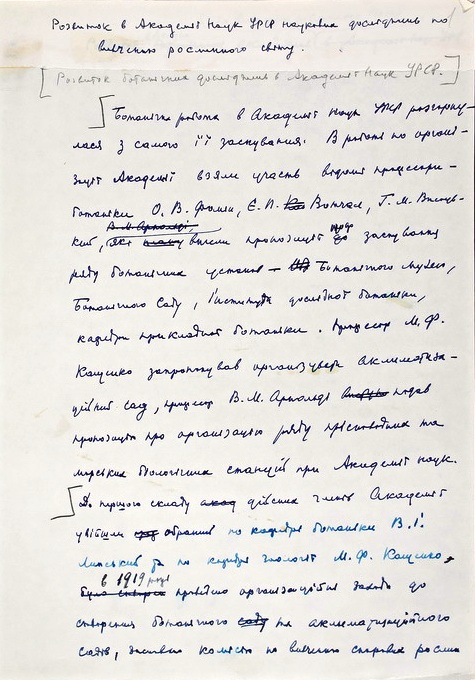 Розвиток в Академії Наук УРСР наукових досліджень по
вивченню рослинного світу.
[Розвиток ботанічних досліджень в Академії Наук УРСР.]
Ботанічна робота в Академії Наук УРСР розгорну-
лася з самого її заснування. В роботі по органі-
зації Академії взяли участь видатні професори-
ботаніки О. В. Фомін, Є. П. Вотчал, Г. М. Висоць-
В. М. Арнольді,
кий, які внесли пропозиції про заснування
ряду ботанічних установ — Ботанічного музею,
Ботанічного саду, Інституту дослідної ботаніки,
кафедри прикладної ботаніки. Професор М. Ф.
Кащенко запропонував організувати акліматиза-
ційний сад, професор В. М. Арнольді подав
пропозицію про організацію ряду прісноводних та
морських біологічних станцій при Академії наук.
До першого складу дійсних членів Академії
увійшли обрані по кафедрі ботаніки В. І.
Липський та по кафедрі зоології М. Ф. Кащенко,
в 1919 році
було створ проведено організаційні заходи до
створення ботанічного саду та акліматизаційного
садів, комісію по вивченню спорових рослин